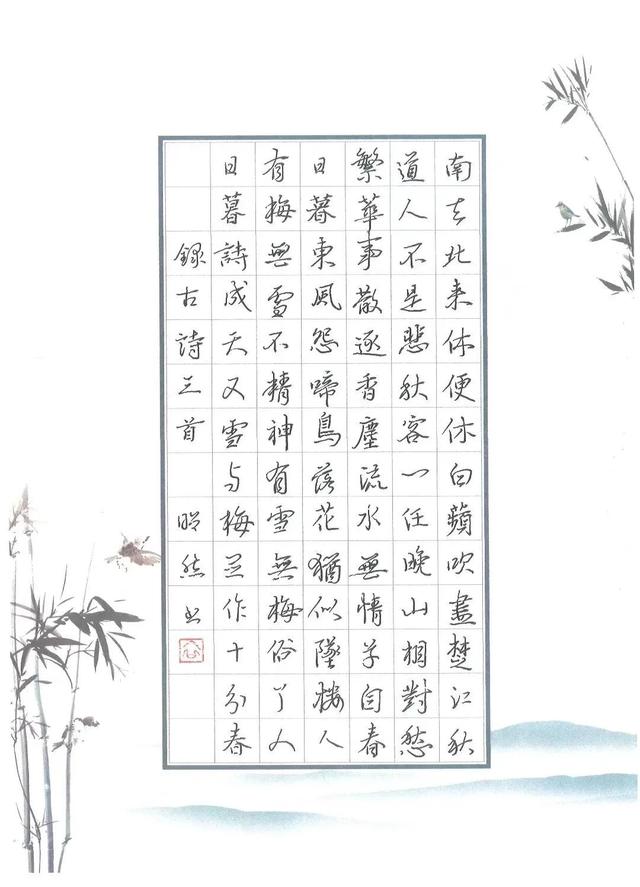 南去北来休便休白蘋吹盡楚江秋
道人不是悲秋客一任晚山相對愁
繁華事散逐香塵流水無情草自春
日暮東風怨啼鳥落花猶似墜楼人
有梅無雪不精神有雪無梅俗了人
日暮詩成天又雪与梅并作十分春
録古詩三首 昭然书